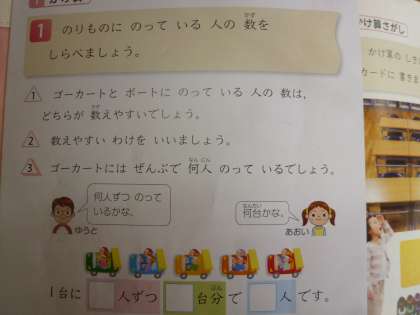 かけ算さがし
1 のりものに のって いる 人の 数を
しらべましょう。
かず
1 ゴーカートと ボートに のって いる 人の 数は、
どちらが 数えやすいでしょう。
かぞ
2 数えやすい わけを いいましょう。
3 ゴーカートには ぜんぶで 何人 のって いるでしょう。
なんにん
何人ずつ のって
いるかな。
ゆうと
なんだい
何台かな。
あおい
1台に □人ずつ □台分で □人 です。
ぶん
かけ算の しき
カードに 書き